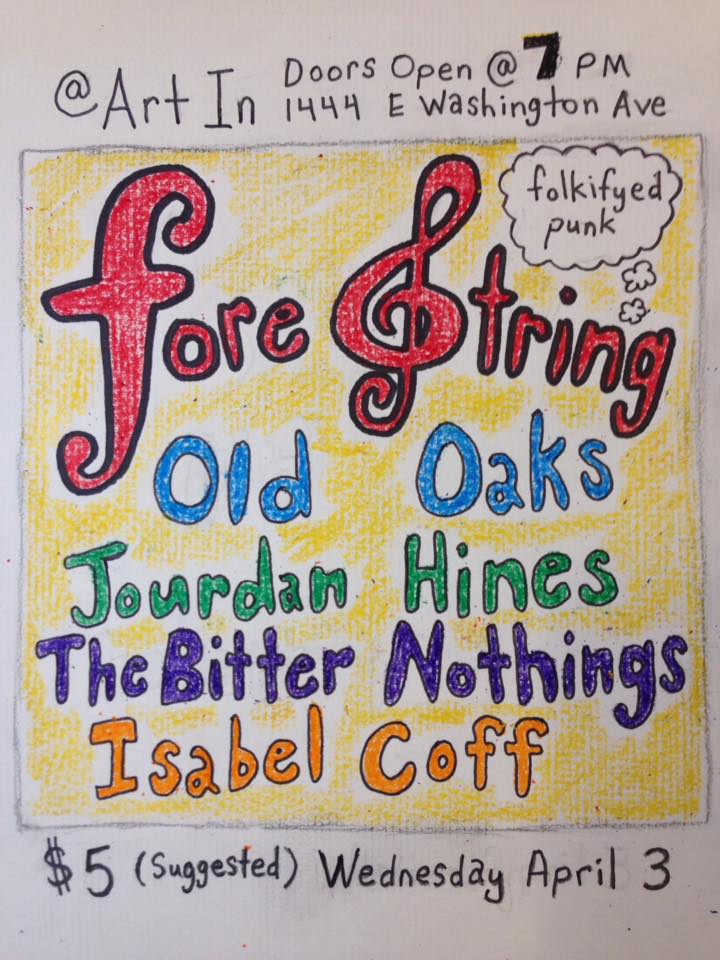 @ Art In Doors Open @ 7 PM
1444 E Washington Ave
folkifyed
punk
fore String
Old Oaks
Jourdan Hines
The Bitter Nothings
Isabel Coff
$5 (Suggested) Wednesday April 3